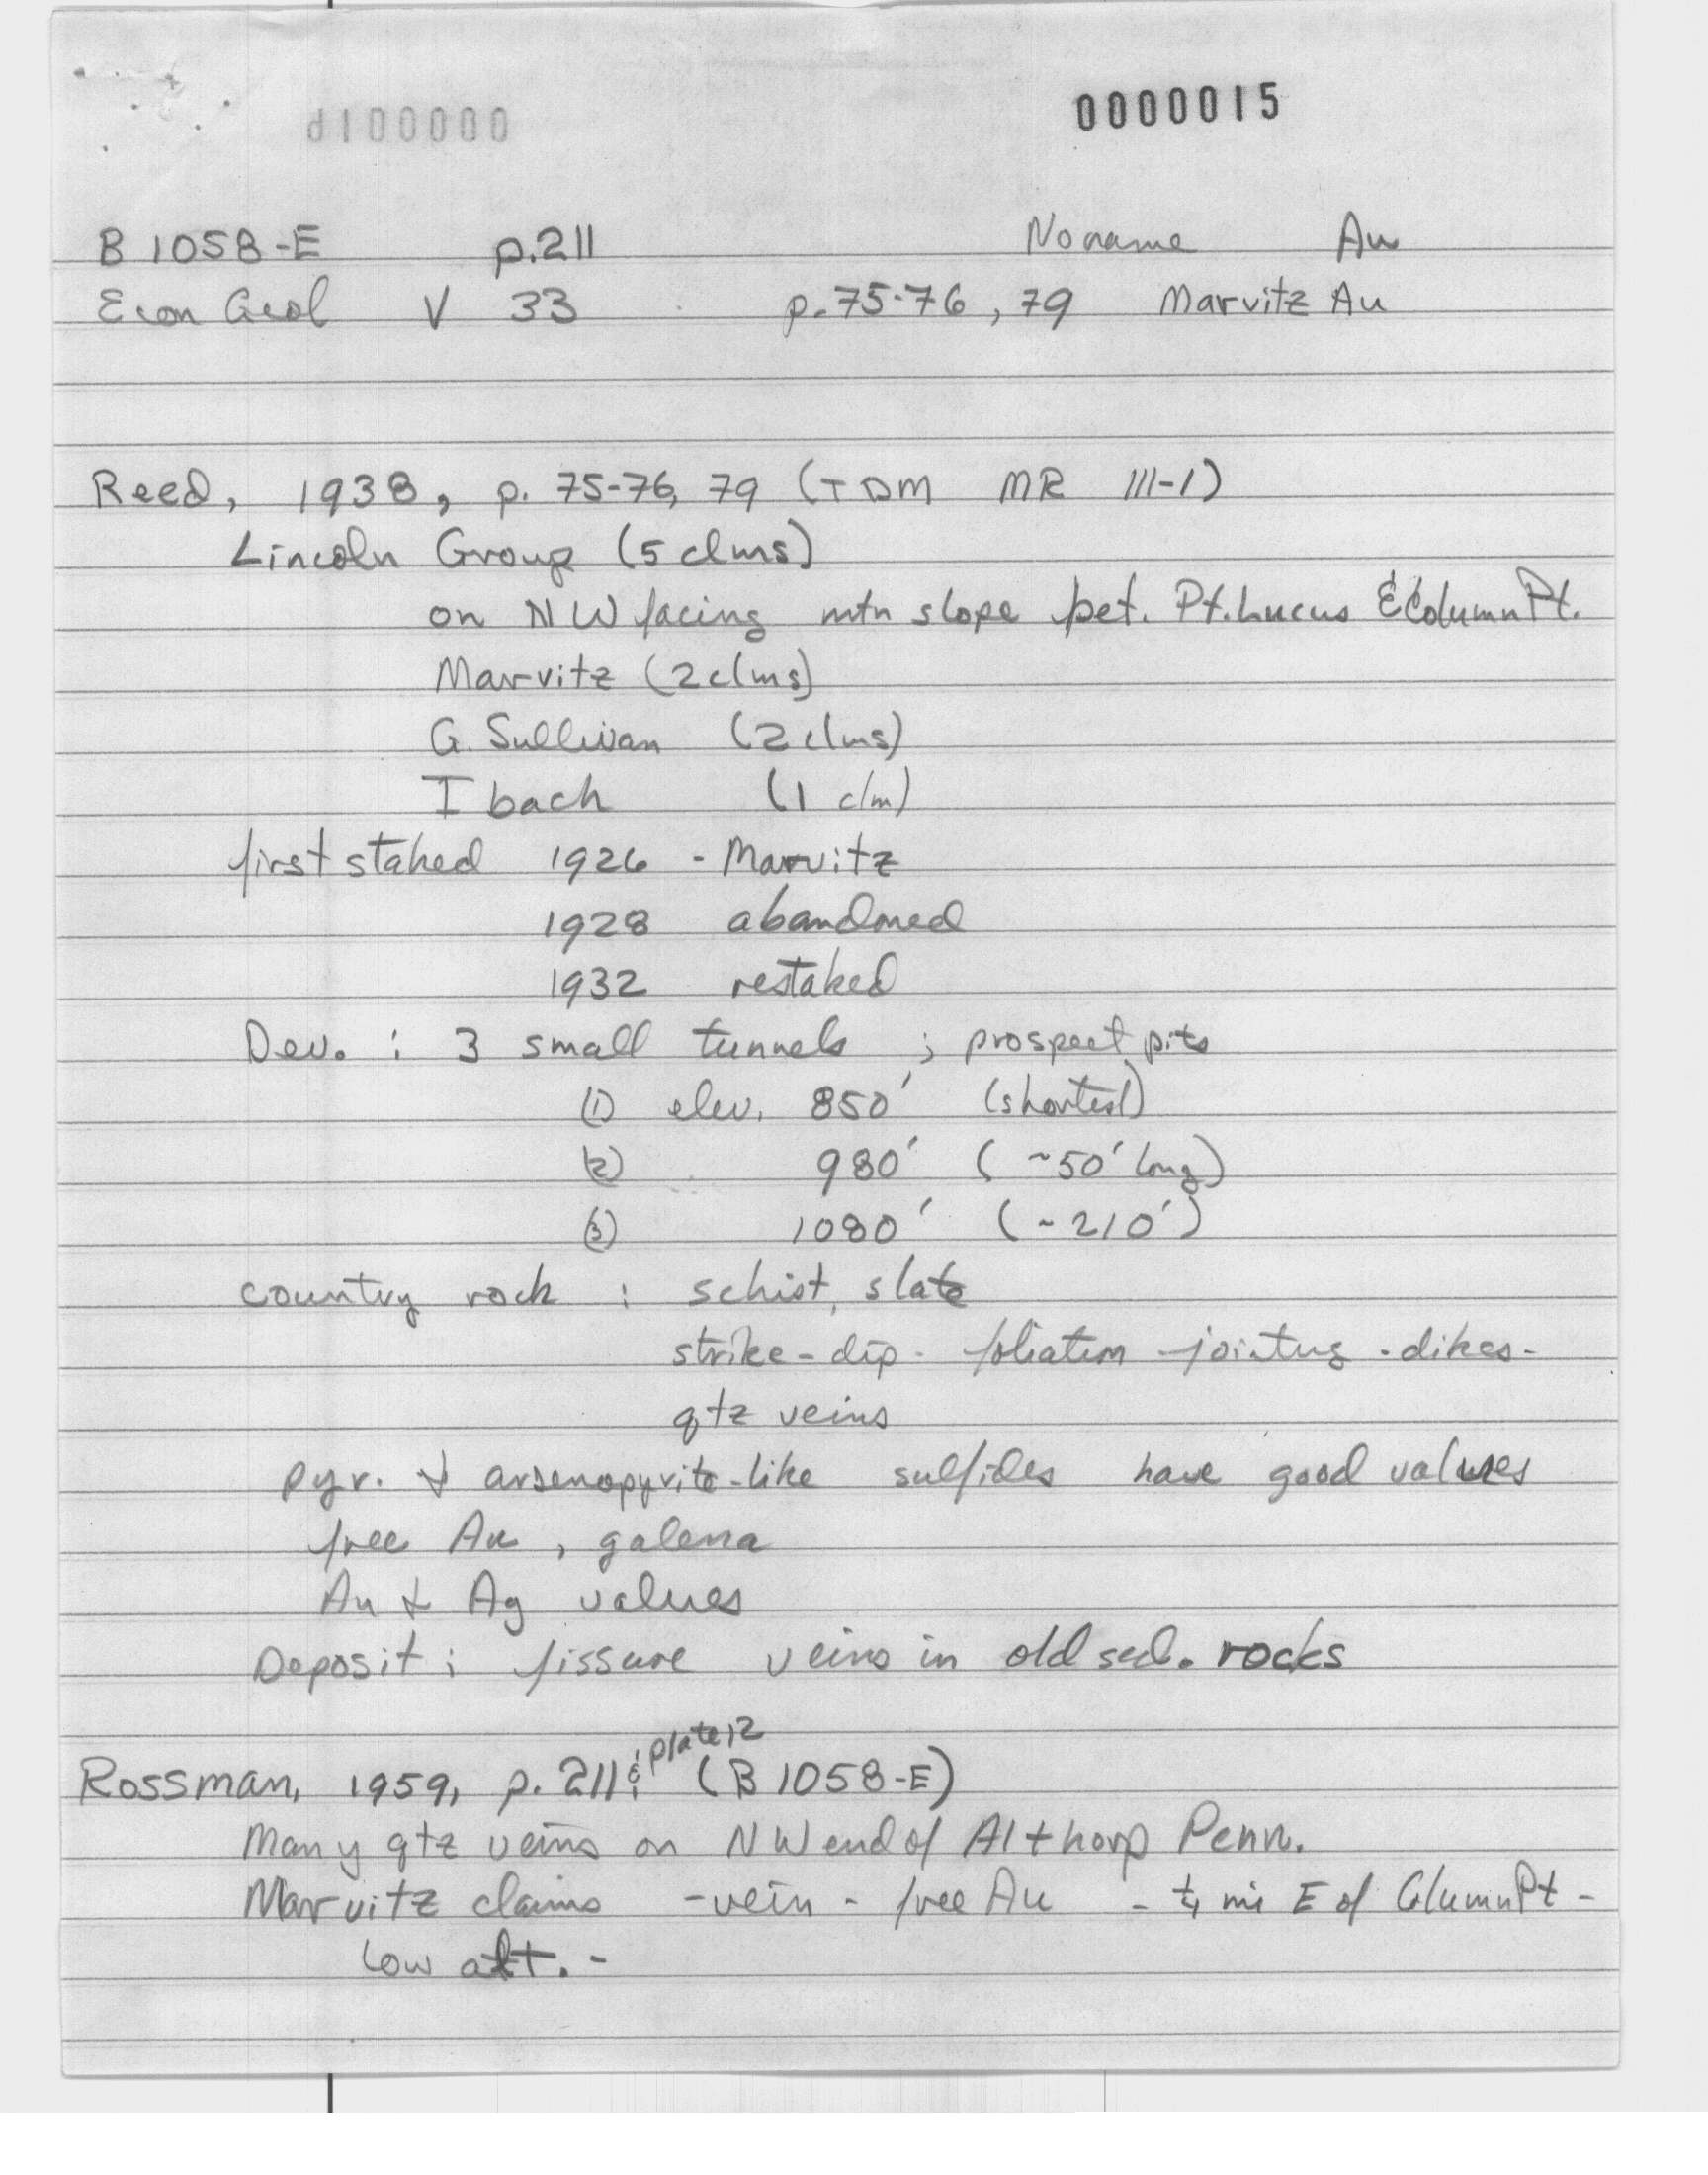 0000015
B 1058-E p.211 Noname Au
Econ Geol V 33 p.75-76, 79 Marvitz Au
Reed, 1938, p. 75-76, 79 (TDM MR 111-1)
Lincoln Group (5 clms)
on NW facing mtn slope bet. Pt. Lucus & Column Pt.
Marvitz (2 clms)
G. Sullivan (2 clms)
Ibach (1 clm)
first staked 1926 - Marvitz
1928 abandoned
1932 restaked
Dev. : 3 small tunnels ; prospect pits
(1) elev. 850' (shortest)
(2) 980' (~50' long)
(3) 1080' (~210')
country rock : schist, slate
strike-dip - foliation - jointing - dikes -
qtz veins
pyr. & arsenopyrite-like sulfides have good values
free Au, galena
Au & Ag values
Deposit: fissure veins in old sed. rocks
Rossman, 1959, p. 211 & plate 12 (B 1058-E)
Many qtz veins on NW end of Althorp Penn.
Marvitz claims - vein - free Au - ¼ mi E of Column Pt -
low alt. -